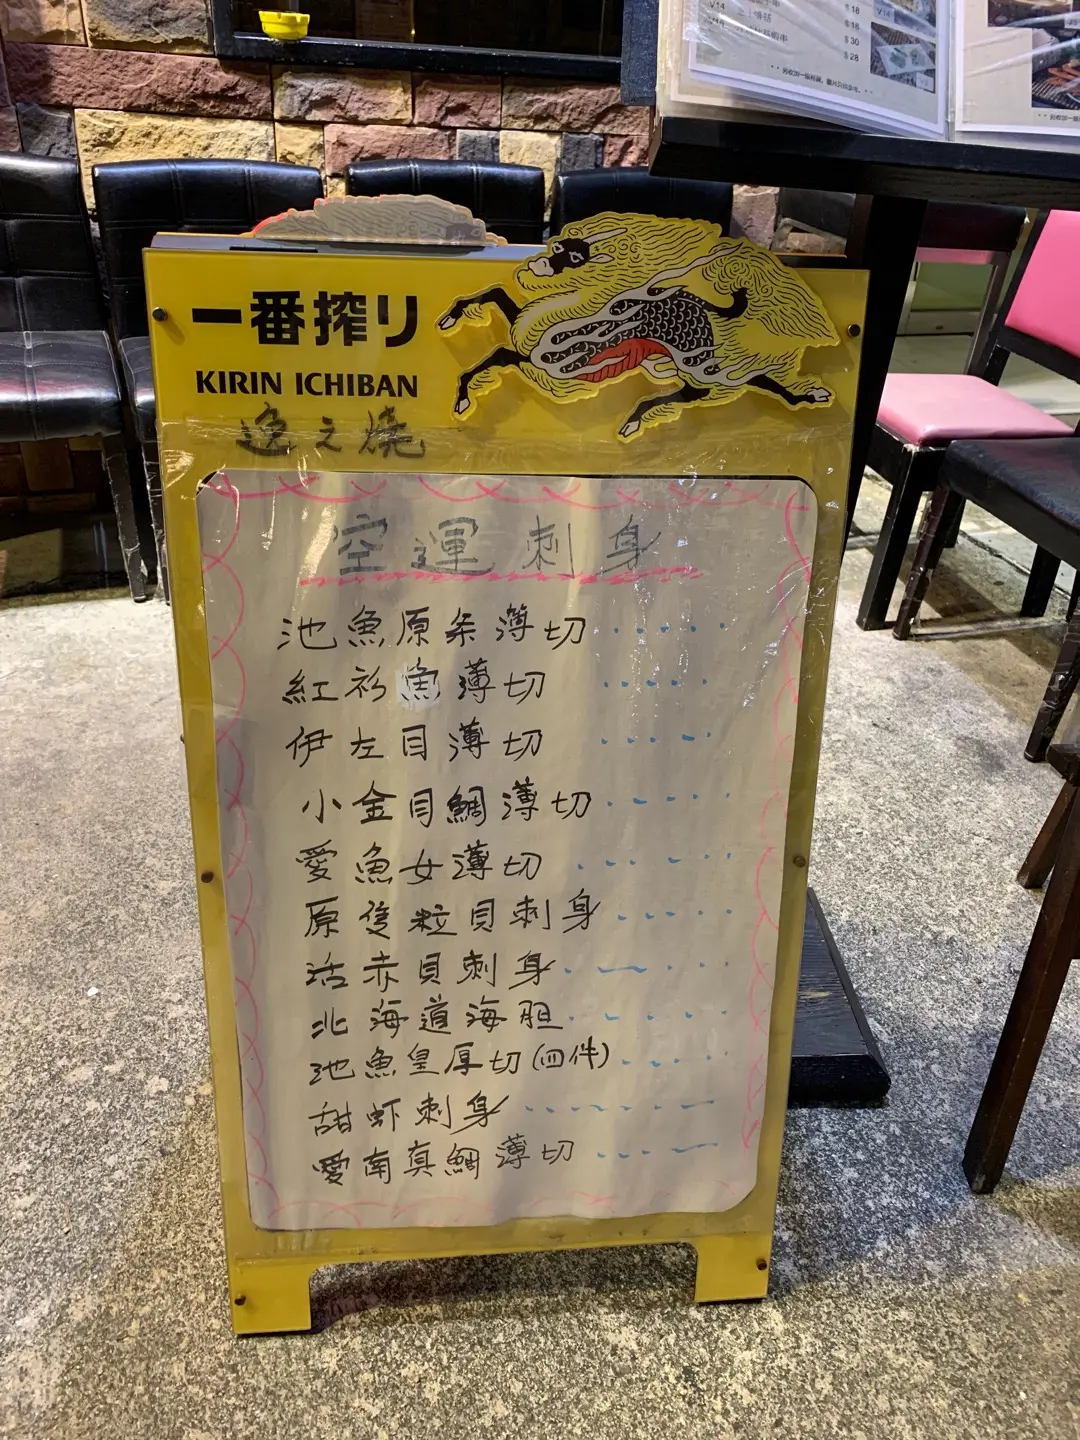 V14
$18
$18
$30
$28
一番搾り
KIRIN ICHIBAN
逸之燒
空運刺身
池魚原条薄切
紅衫魚薄切
伊左目薄切
小金目鯛薄切
愛魚女薄切
原隻粒貝刺身
活赤貝刺身
北海道海胆
池魚皇厚切(四件)
甜虾刺身
愛南真鯛薄切